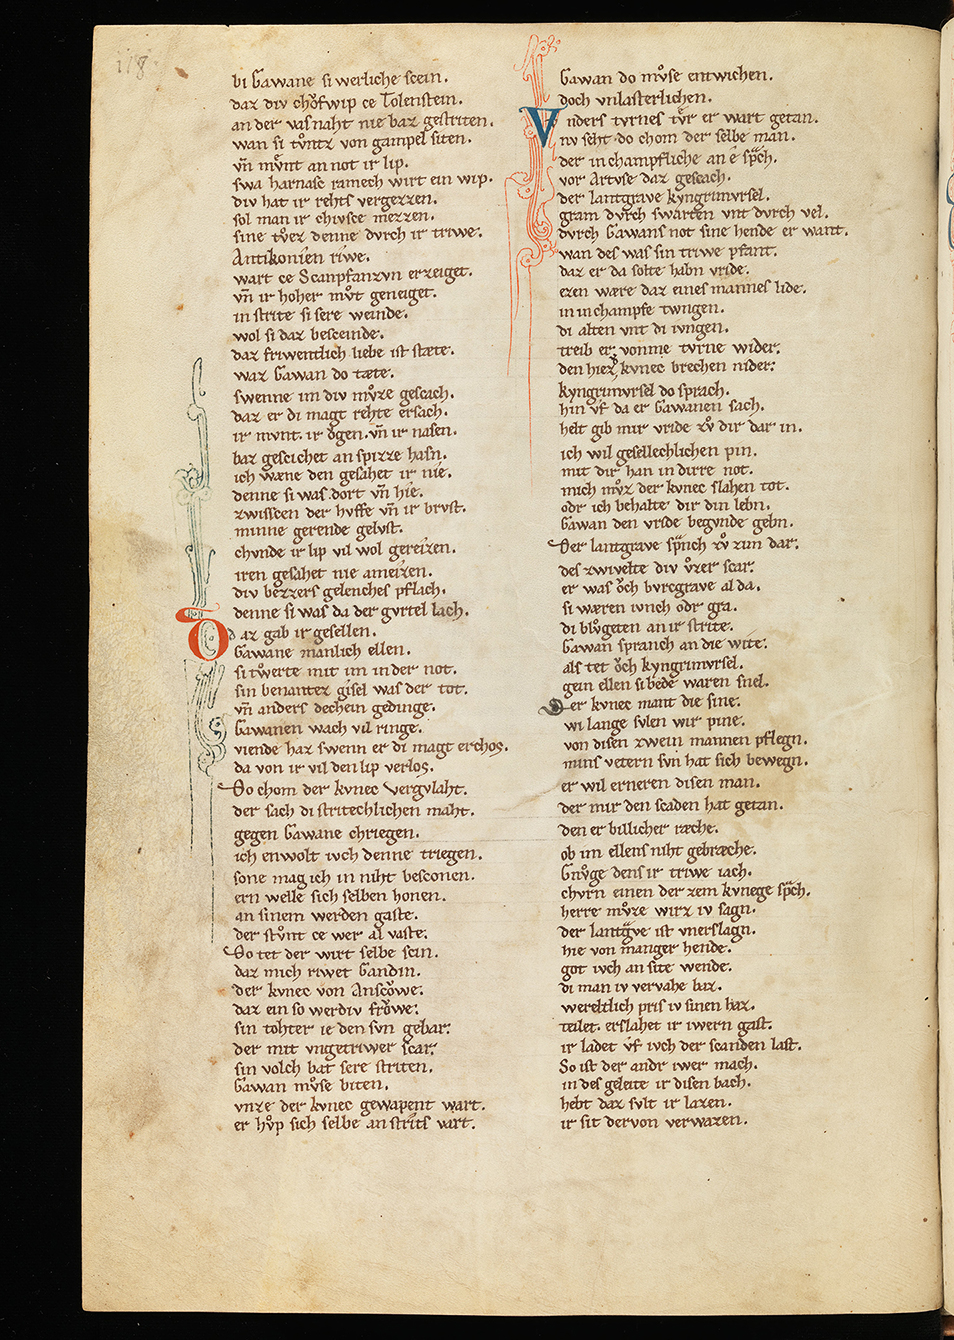 118
bi Gawane si werliche scein.
daz div chŏfwip ce Tolenstein.
an der vasnaht nie baz gestriten.
wan si tv̊ntz von gampel siten.
vn̄ mv̊nt an not ir lip.
swa harnasc ramech wirt ein wip.
div hat ir rehts vergezzen.
sol man ir chivsce mezzen.
sine tv̊ez denne dvrch ir triwe.
Antikonien riwe.
wart ce Scanpfanzvn erzeiget.
vn̄ ir hoher mv̊t geneiget.
in strite si sere weinde.
wol si daz besceinde.
daz friwentlich liebe ist stæte.
waz Gawan do tæte.
swenne im div mv̊ze gescach.
daz er di magt rehte ersach.
ir mvnt. ir ŏgen. vn̄ ir nasen.
baz gescichet an spizze hasn.
ich wæne den gesahet ir nie.
denne si was dort vn̄ hie.
zwisscen der hvffe vn̄ ir brvst.
minne gerende gelvst.
chvnde ir lip vil wol gereizen.
iren gesahet nie ameizen.
div bezzers gelenches pflach.
denne si was da der gvrtel lach.
Daz gab ir gesellen.
Gawane manlich ellen.
si tv̊werte mit im in der not.
sin benantez gisel was der tot.
vn̄ anders dechein gedinge.
Gawanen wach vil ringe.
viende haz swenn er di magt erchos.
da von ir vil den lip verlos.
Do chom der kvnec Vergvlaht.
der sach di stritechlichen maht.
gegen Gawane chriegen.
ich enwolt ivch denne triegen.
sone mag ich in niht besconen.
ern welle sich selben honen.
an sinem werden gaste.
der stv̊nt ce wer al vaste.
Do tet der wirt selbe scin.
daz mich riwet Gandin.
der kvnec von Anscŏwe.
daz ein so werdiv frŏwe.
sin tohter ie den svn gebar.
der mit vngetriwer scar.
sin volch bat sere striten.
Gawan mv̊se biten.
vnze der kvnec gewapent wart.
er hv̊p sich selbe an strits vart.
Gawan do mv̊se entwichen.
doch vnlasterlichen.
Vnders tvrnes tv̊r er wart getan.
nv seht do chom der selbe man.
der in champfliche an ê sp̄ch.
vor Artvse daz gescach.
der lantgrave kyngrimvrsel.
gram dvrch swarten vnt dvrch vel.
dvrch Gawans not sine hende er want.
wan des was sin triwe pfant.
daz er da solte habn vride.
ezen wære daz eines mannes lide.
in in champfe twngen.
di alten vnt di ivngen.
treib er vonme tvrne wider.
den hiez kvnec brechen nider.
kyngrimvrsel do sprach.
hin vf da er Gawanen sach.
helt gib mir vride zv̊ dir dar in.
ich wil gesellechlichen pin.
mit dir han in dirre not.
mich mv̊z der kvnec slahen tot.
odr ich behalte dir din lebn.
Gawan den vride begvnde gebn.
Der lantgrave spranch zv̊ zim dar.
des zwivelte div v̊zer scar.
er was ŏch bvrcgrave al da.
si wæren ivnch odr gra.
di blv̊geten an ir strite.
Gawan spranch an die wite.
als tet ŏch kyngrimvrsel.
gein ellen si bede waren snel.
Der kvnec mant die sine.
wi lange svlen wir pine.
von disen zwein mannen pflegn.
mins vetern svn hat sich bewegn.
er wil erneren disen man.
der mir den scaden hat getan.
den er billicher ræche.
ob im ellens niht gebræche.
Gnv̊ge dens ir triwe iach.
chvrn einen der zem kvnege sp̄ch.
herre mv̊ze wirz iv sagn.
der lantgve ist vnerslagn.
hie von manger hende.
got ivch an site wende.
di man iv vervahe baz.
wereltlich pris iv sinen haz.
teilet. erslahet ir iwern gast.
ir ladet v̂f ivch der scanden last.
So ist der andr iwer mach.
in des geleite ir disen bach.
hebt daz svlt ir lazen.
ir sit dervon verwazen.